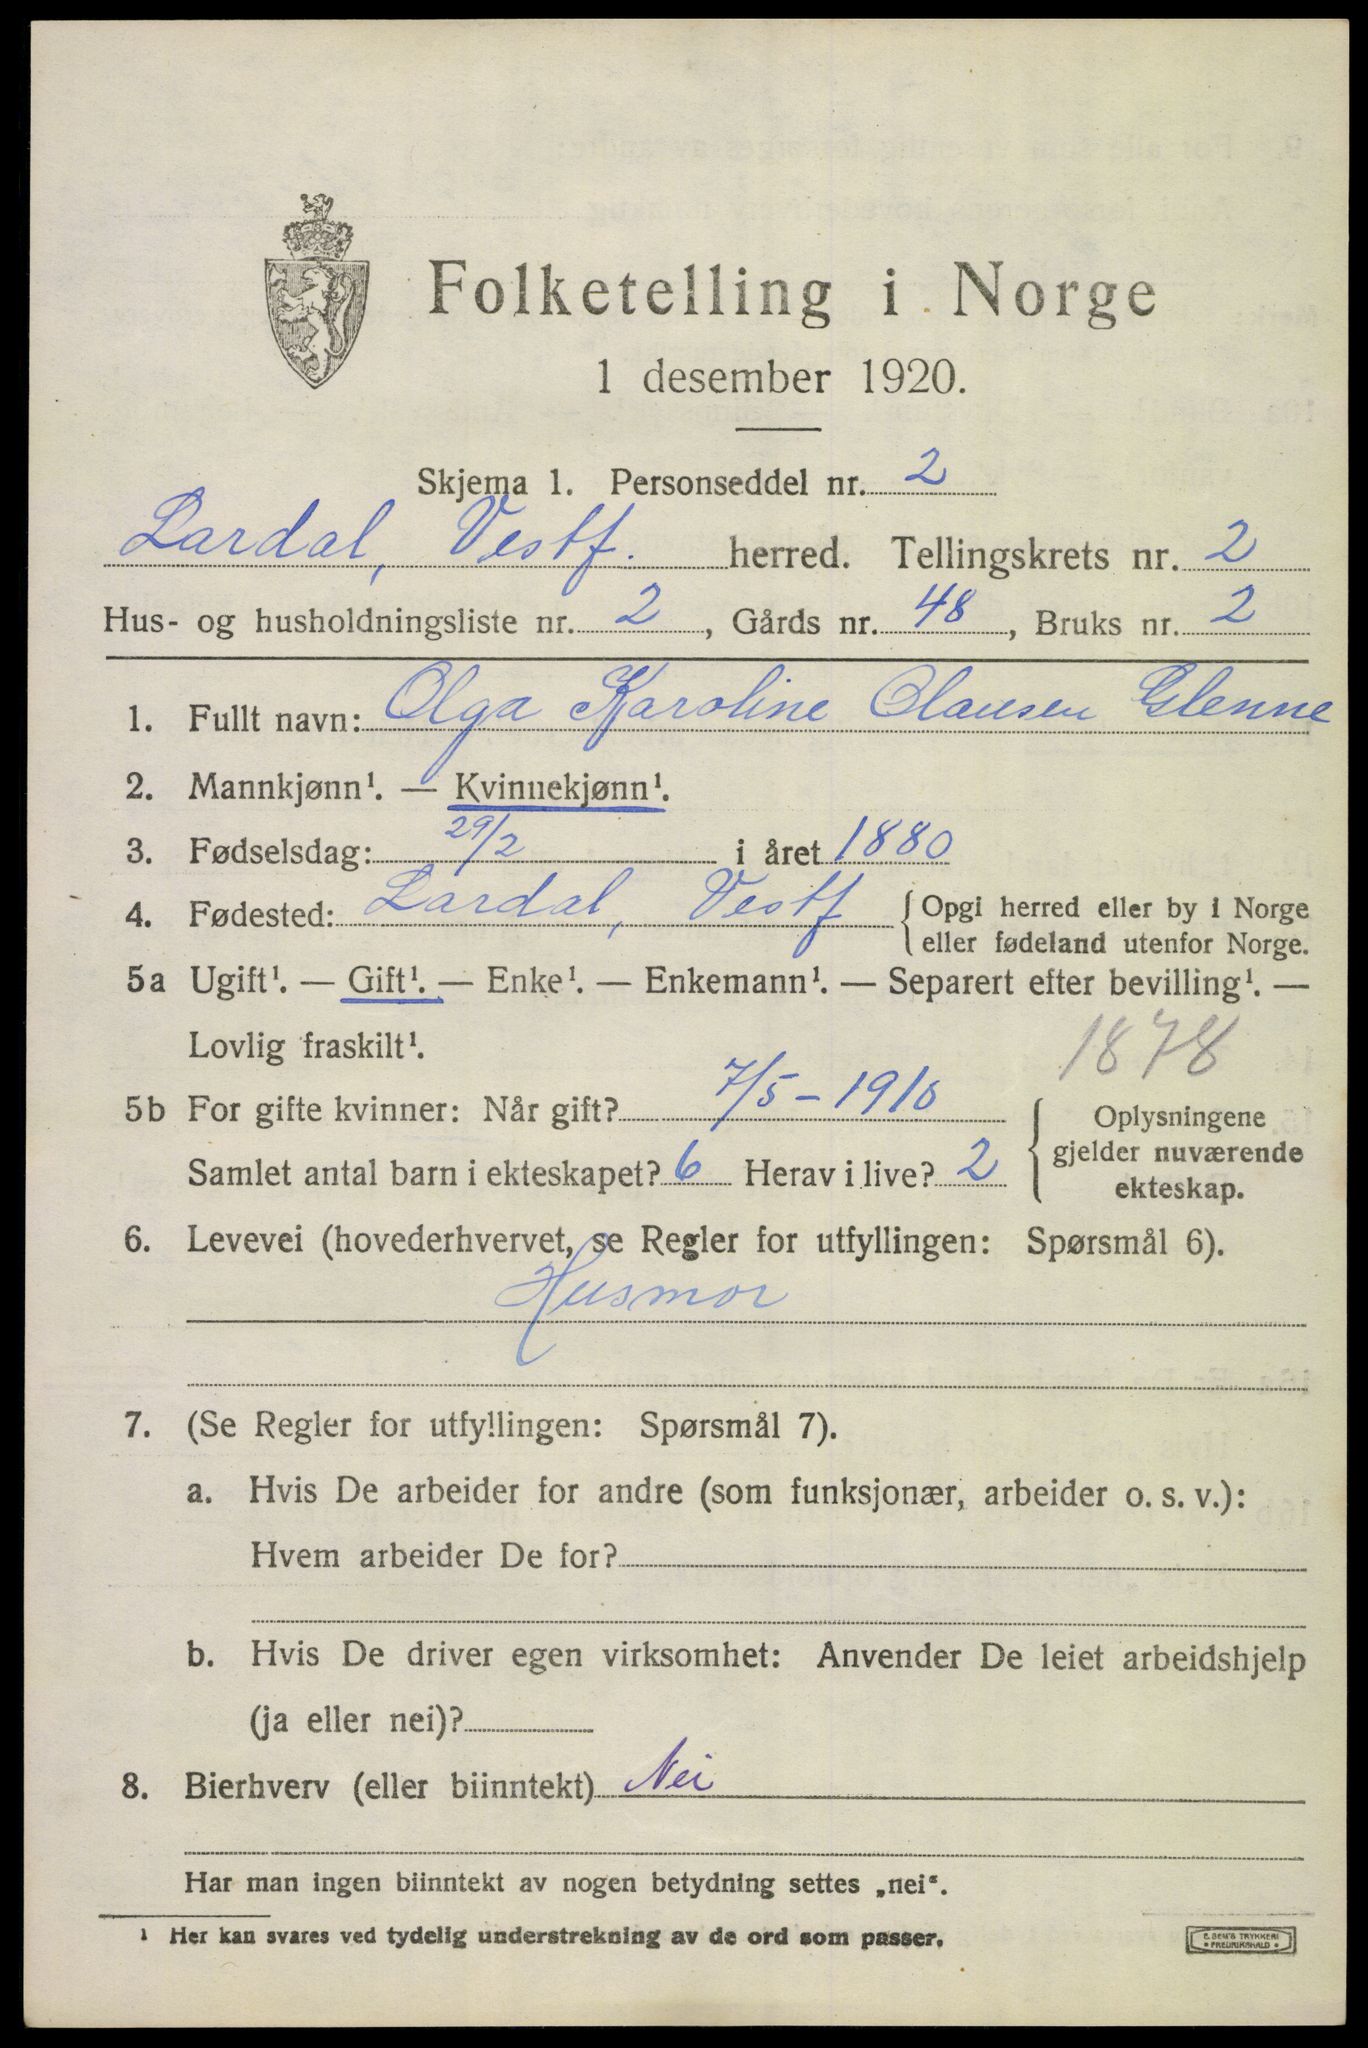 Folketelling i Norge
1 desember 1920.
Skjema 1. Personseddel nr. 2
Lardal, Vestf. herred. Tellingskrets nr. 2
Hus- og husholdningsliste nr. 2, Gårds nr. 48, Bruks nr. 2
1. Fullt navn: Olga Karoline Clausen Glenne
2. Mannkjønn¹. — Kvinnekjønn¹.
3. Fødselsdag: 29/2 i året 1880
4. Fødested: Lardal, Vestf { Opgi herred eller by i Norge
eller fødeland utenfor Norge.
5a Ugift¹. — Gift¹. — Enke¹. — Enkemann¹. — Separert efter bevilling¹. —
Lovlig fraskilt¹.
1878
5b For gifte kvinner: Når gift? 7/5 - 1910
Samlet antal barn i ekteskapet? 6 Herav i live? 2
{ Oplysningene
gjelder nuværende
ekteskap.
6. Levevei (hovederhvervet, se Regler for utfyllingen: Spørsmål 6).
Husmor
7. (Se Regler for utfyllingen: Spørsmål 7).
a. Hvis De arbeider for andre (som funksjonær, arbeider o. s. v.):
Hvem arbeider De for?
b. Hvis De driver egen virksomhet: Anvender De leiet arbeidshjelp
(ja eller nei)?
8. Bierhverv (eller biinntekt) Nei
Har man ingen biinntekt av nogen betydning settes „nei“.
¹ Her kan svares ved tydelig understrekning av de ord som passer.
E. SEM'S TRYKKERI
• FREDRIKSHALD •